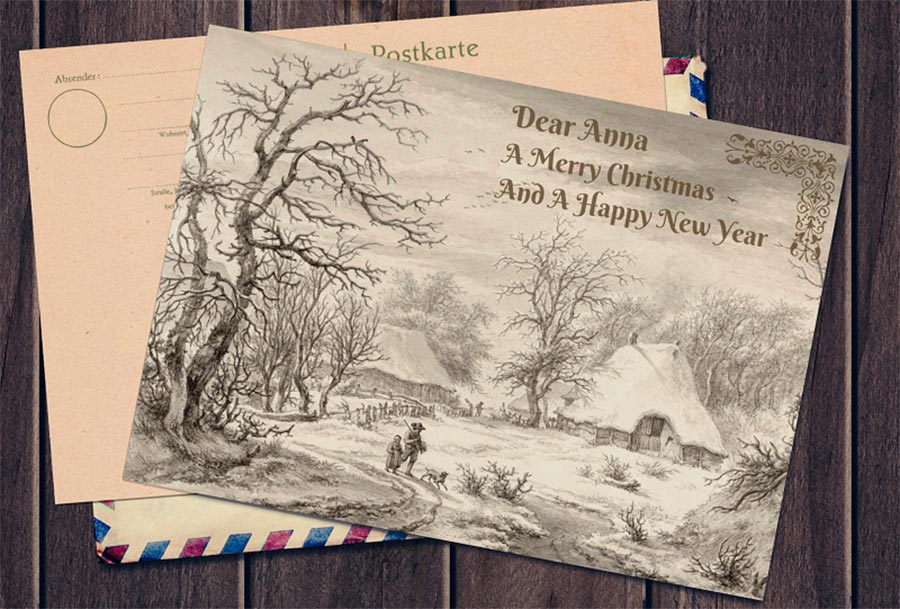 Postkarte
Absender:
Wohnort,
Straße,
Dear Anna
A Merry Christmas
And A Happy New Year